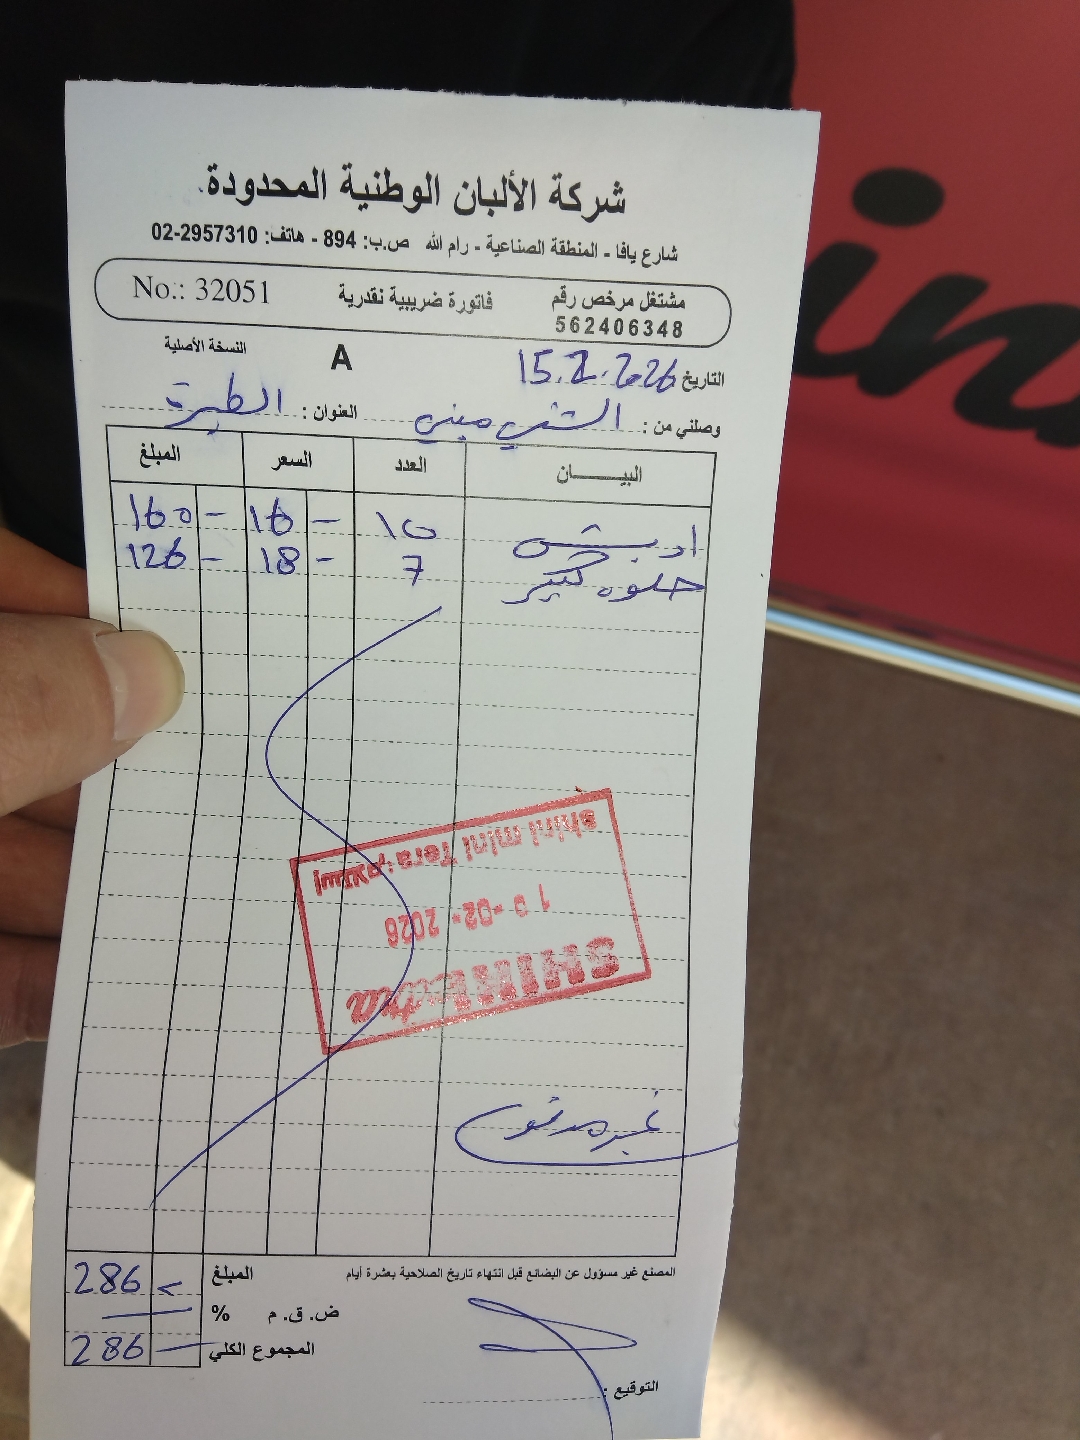 شركة الألبان الوطنية المحدودة
شارع يافا - المنطقة الصناعية - رام الله ص.ب: 894 - هاتف: 02-2957310
مشتغل مرخص رقم 562406348
فاتورة ضريبية نقدية
No.: 32051
النسخة الأصلية
A
التاريخ 15.2.2026
وصلني من : الشني ميني العنوان : الطيرة
البيـــــــان العدد السعر المبلغ
10 16 - 160 -
حلوه كبير 7 18 - 126 -
shini mini Tera إستلام:
-02- 2026
SHINI extra
غير مدفوع
المصنع غير مسؤول عن البضائع قبل انتهاء تاريخ الصلاحية بعشرة أيام
المبلغ 286
ض. ق. م %
المجموع الكلي 286
التوقيع :
in